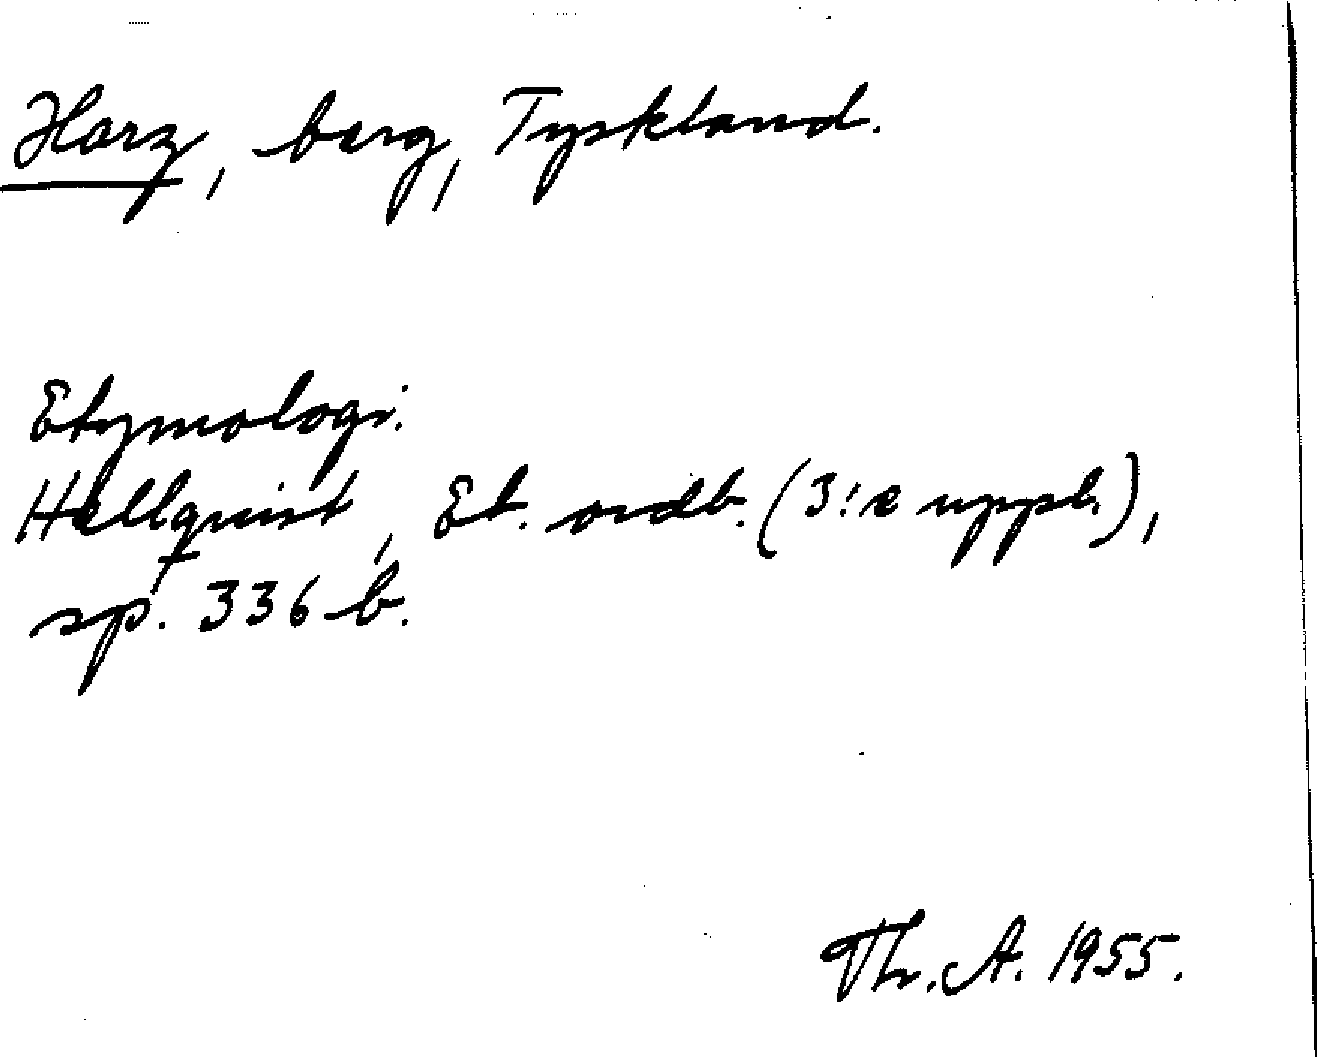 Harz, berg, Tyskland.
Etymologi.
Hellquist, Et. ordb. (3:e uppl.),
sp. 336 b.
Th. A. 1955.